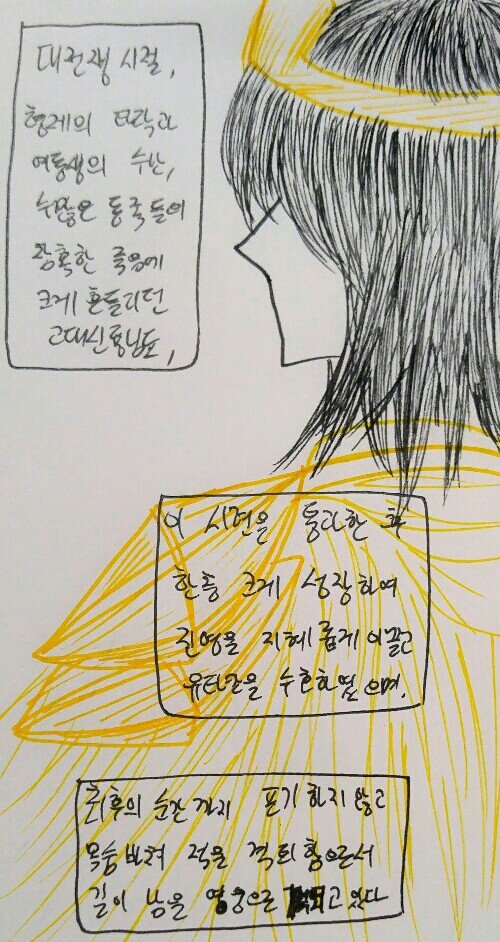 대전쟁 시절,
형제의 타락과
여동생의 수난,
수많은 동족들의
참혹한 죽음에
크게 흔들리던
고대신룡님도,
이 시련을 통과한 후
한층 크게 성장하여
진영을 지혜롭게 이끌던
유타칸을 수호하였으며,
최후의 순간까지 포기하지 않고
목숨바쳐 적을 격퇴함으로서
길이 남을 영웅으로 고 있다